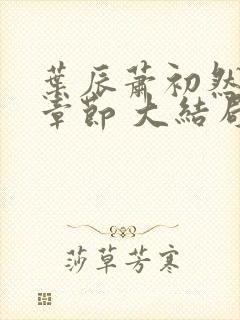 葉辰蕭初然
章節 大結局
莎草芳寒